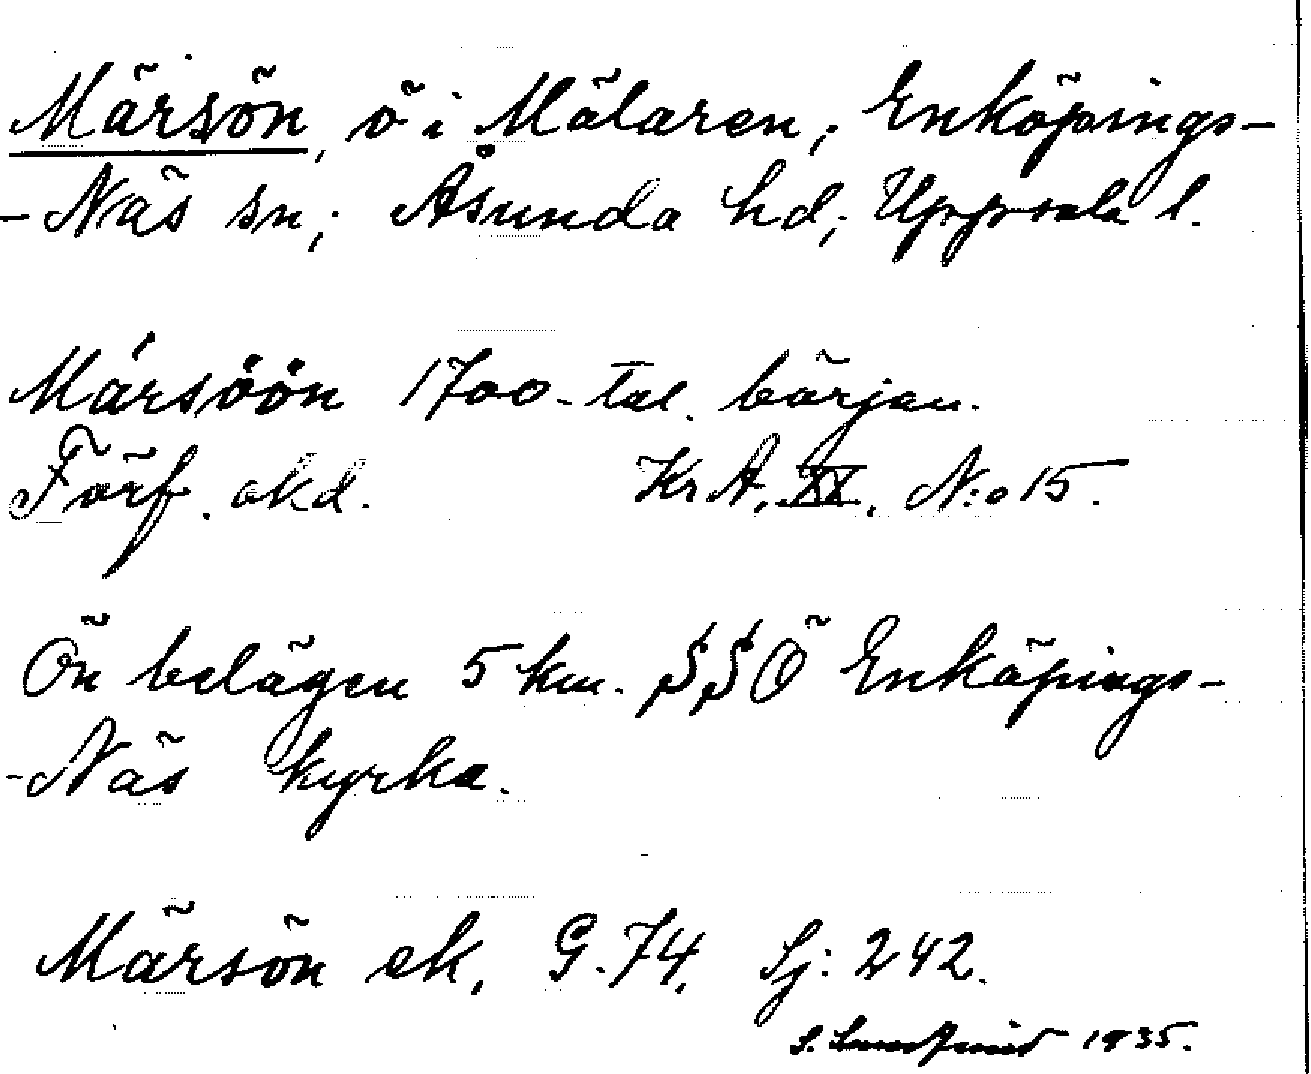 Märsön, ö i Mälaren; Enköpings-
-Näs sn; Åsunda hd; Uppsala l.
Mårsöön 1700-tal. början.
Förf. okd. Kr A. XX. N:o 15.
Ön belägen 5 km. SSÖ Enköpings-
-Näs kyrka.
Märsön ek. G. 74. Sj: 242.
S. 1935.